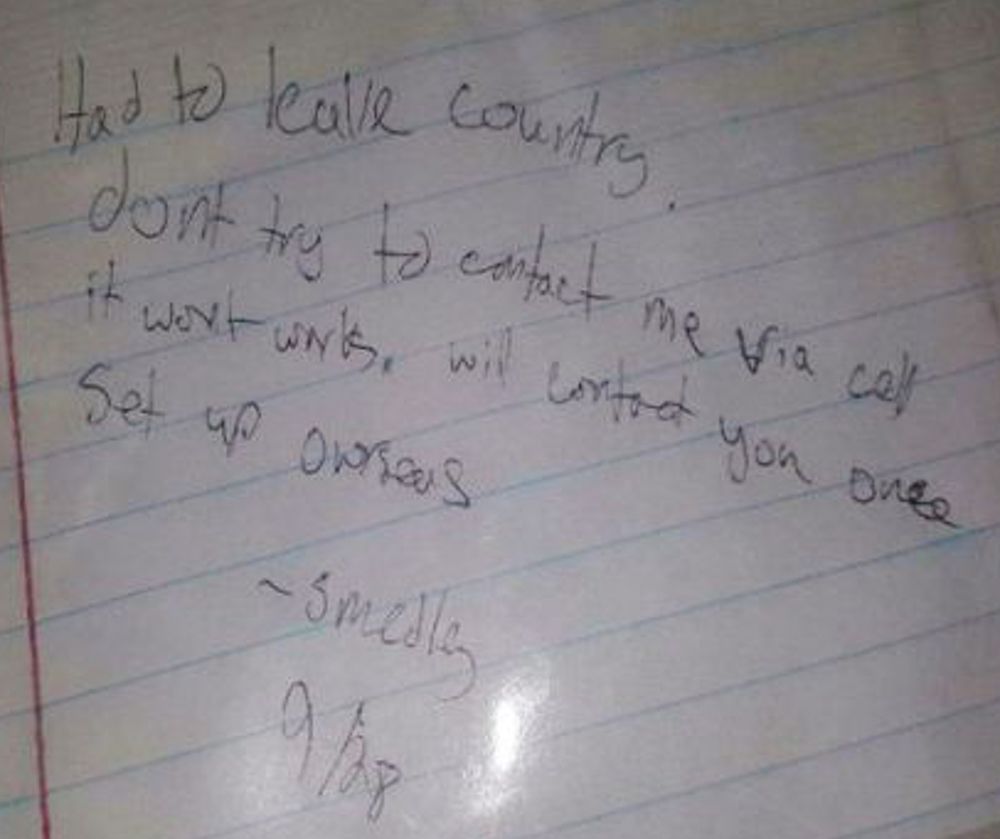 Had to leave country.
dont try to contact me via cell
it wont work. will contact you once
Set up overseas
~Smedley
9/28